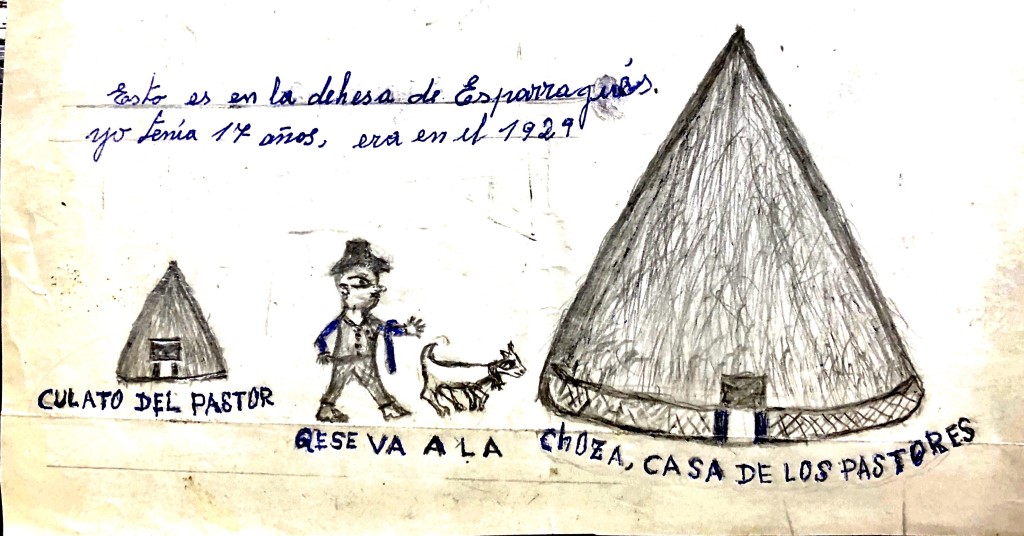 Esto es en la dehesa de Esparragués.
yo tenía 17 años, era en el 1929
CULATO DEL PASTOR
QESE VA A LA
CHOZA, CASA DE LOS PASTORES